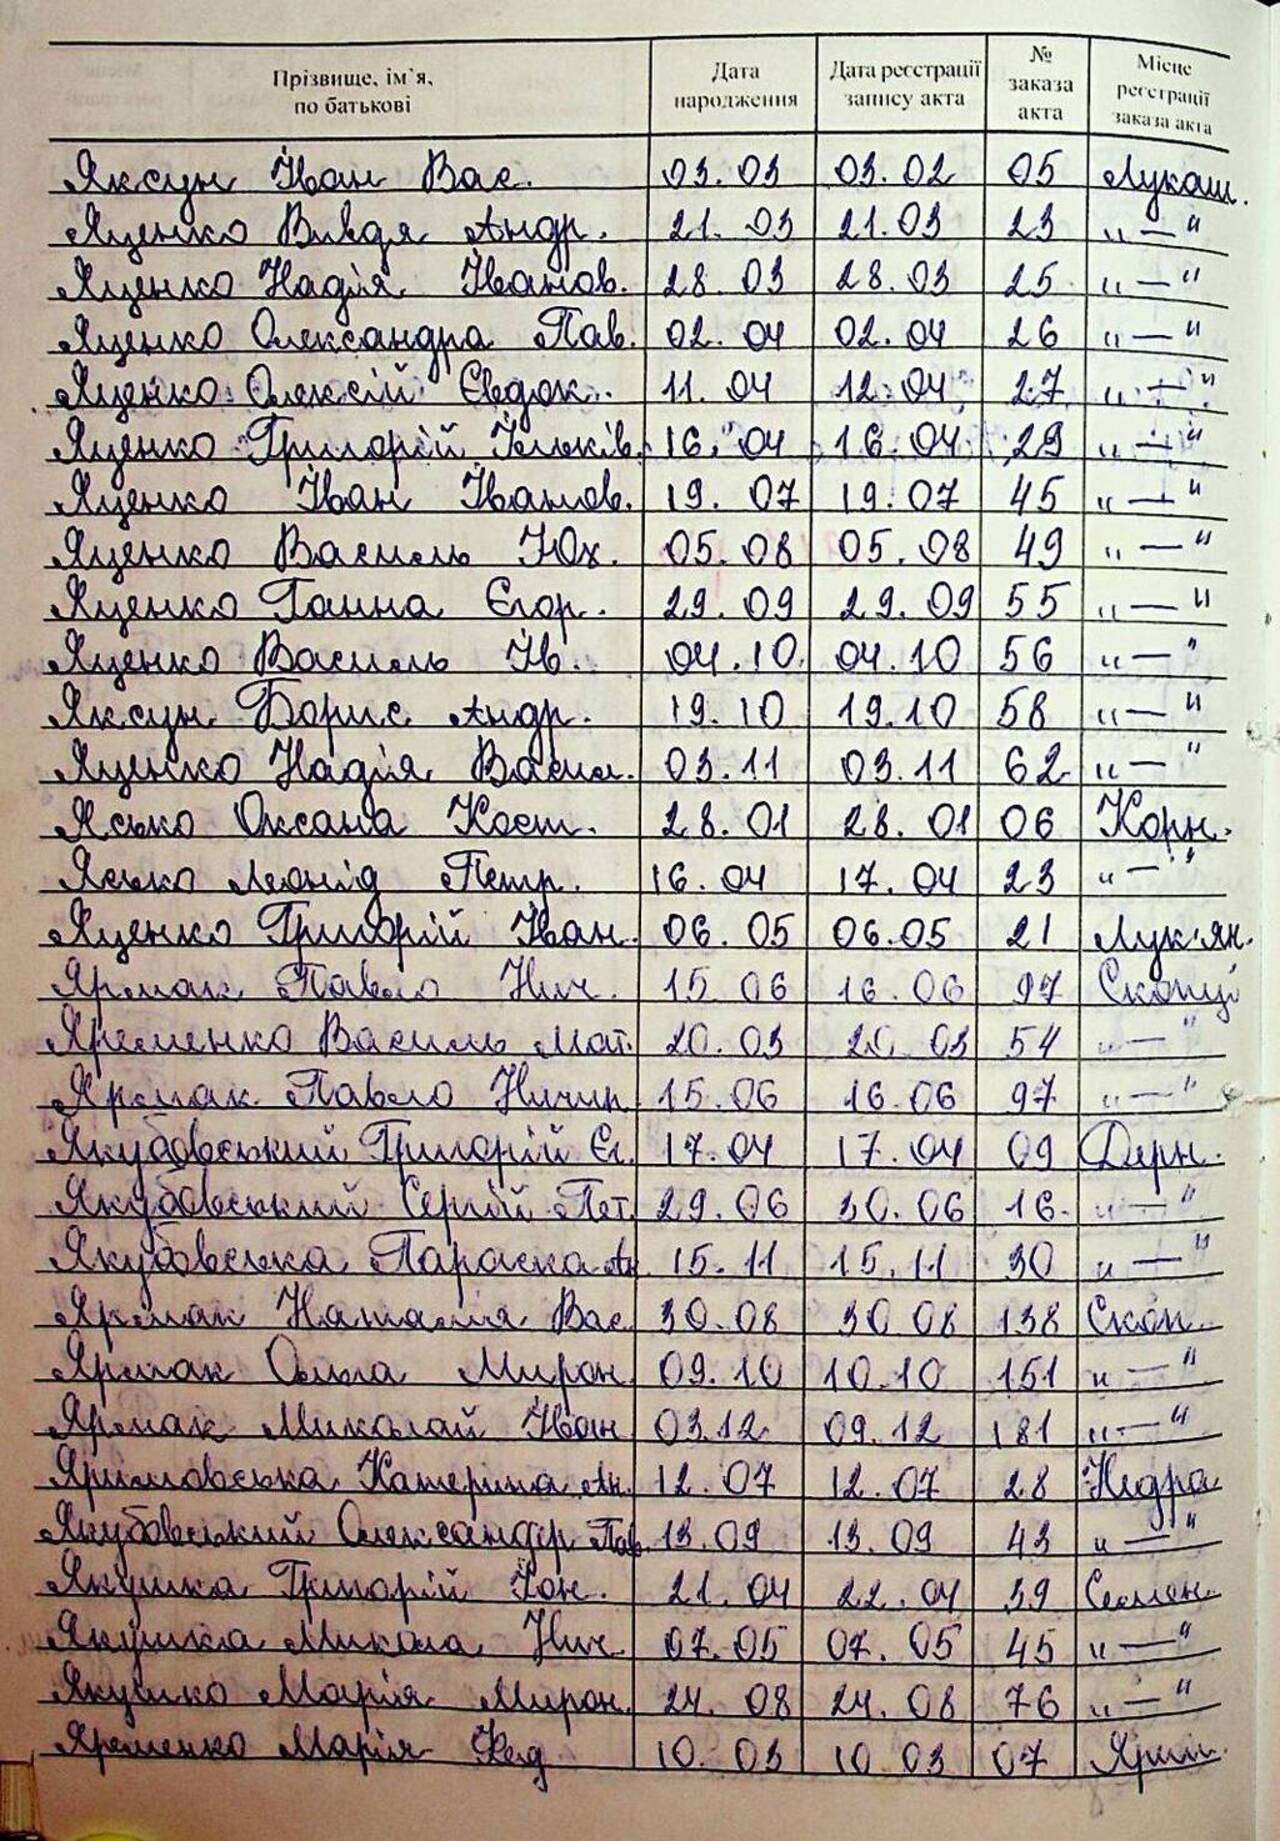 Прізвище, ім`я, по батькові Дата народження Дата реєстрації запису акта № заказа акта Місце реєстрації заказа акта
Яксун Іван Вас. 03.03 03.02 05 Лукаш.
Яценко Вивдя Андр. 21.03 21.03 23 „—“
Яценко Надія Іванов. 28.03 28.03 25 „—“
Яценко Олександра Пав. 02.04 02.04 26 „—“
Яценко Олексій Євдок. 11.04 12.04 27 „—“
Яценко Григорій 16.04 16.04 29 „—“
Яценко Іван Іванов. 19.07 19.07 45 „—“
Яценко Василь Юх. 05.08 05.08 49 „—“
Яценко Ганна Єгор. 29.09 29.09 55 „—“
Яценко Василь Ів. 04.10. 04.10 56 „—“
Яксун Борис Андр. 19.10 19.10 58 „—“
Яценко Надія Васил. 03.11 03.11 62 „—“
Ясько Оксана Кост. 28.01 28.01 06 Корн.
Ясько Леонід Петр. 16.04 17.04 23 „—“
Яценко Григорій Іван. 06.05 06.05 21 Лук'ян.
Ярмак Павло Нич. 15.06 16.06 97 Скопці
Яременко Василь Мат. 20.03 20.03 54 „—“
Ярмак Павло Ничип. 15.06 16.06 97 „—“
Якубовський Григорій Єг. 17.04 17.04 09 Дерн.
Якубовський Сергій Пет. 29.06 30.06 16. „—“
Якубовська Параска Ан. 15.11 15.11 30 „—“
Ярмак Наталія Вас. 30.08 30.08 138 Скоп.
Ярмак Ольга Мирон. 09.10 10.10 151 „—“
Ярмак Миколай Іван 03.12 09.12 181 „—“
Яримовська Катерина Ан. 12.07 12.07 28 Недра
Якубовський Олександр Пав. 13.09 13.09 43 „—“
Якушка Григорій 21.04 22.04 39 Семен.
Якушка Микола Нич. 07.05 07.05 45 „—“
Якушко Марія Мирон. 24.08 24.08 76 „—“
Яременко Марія Фед 10.03 10.03 07 Ярем.